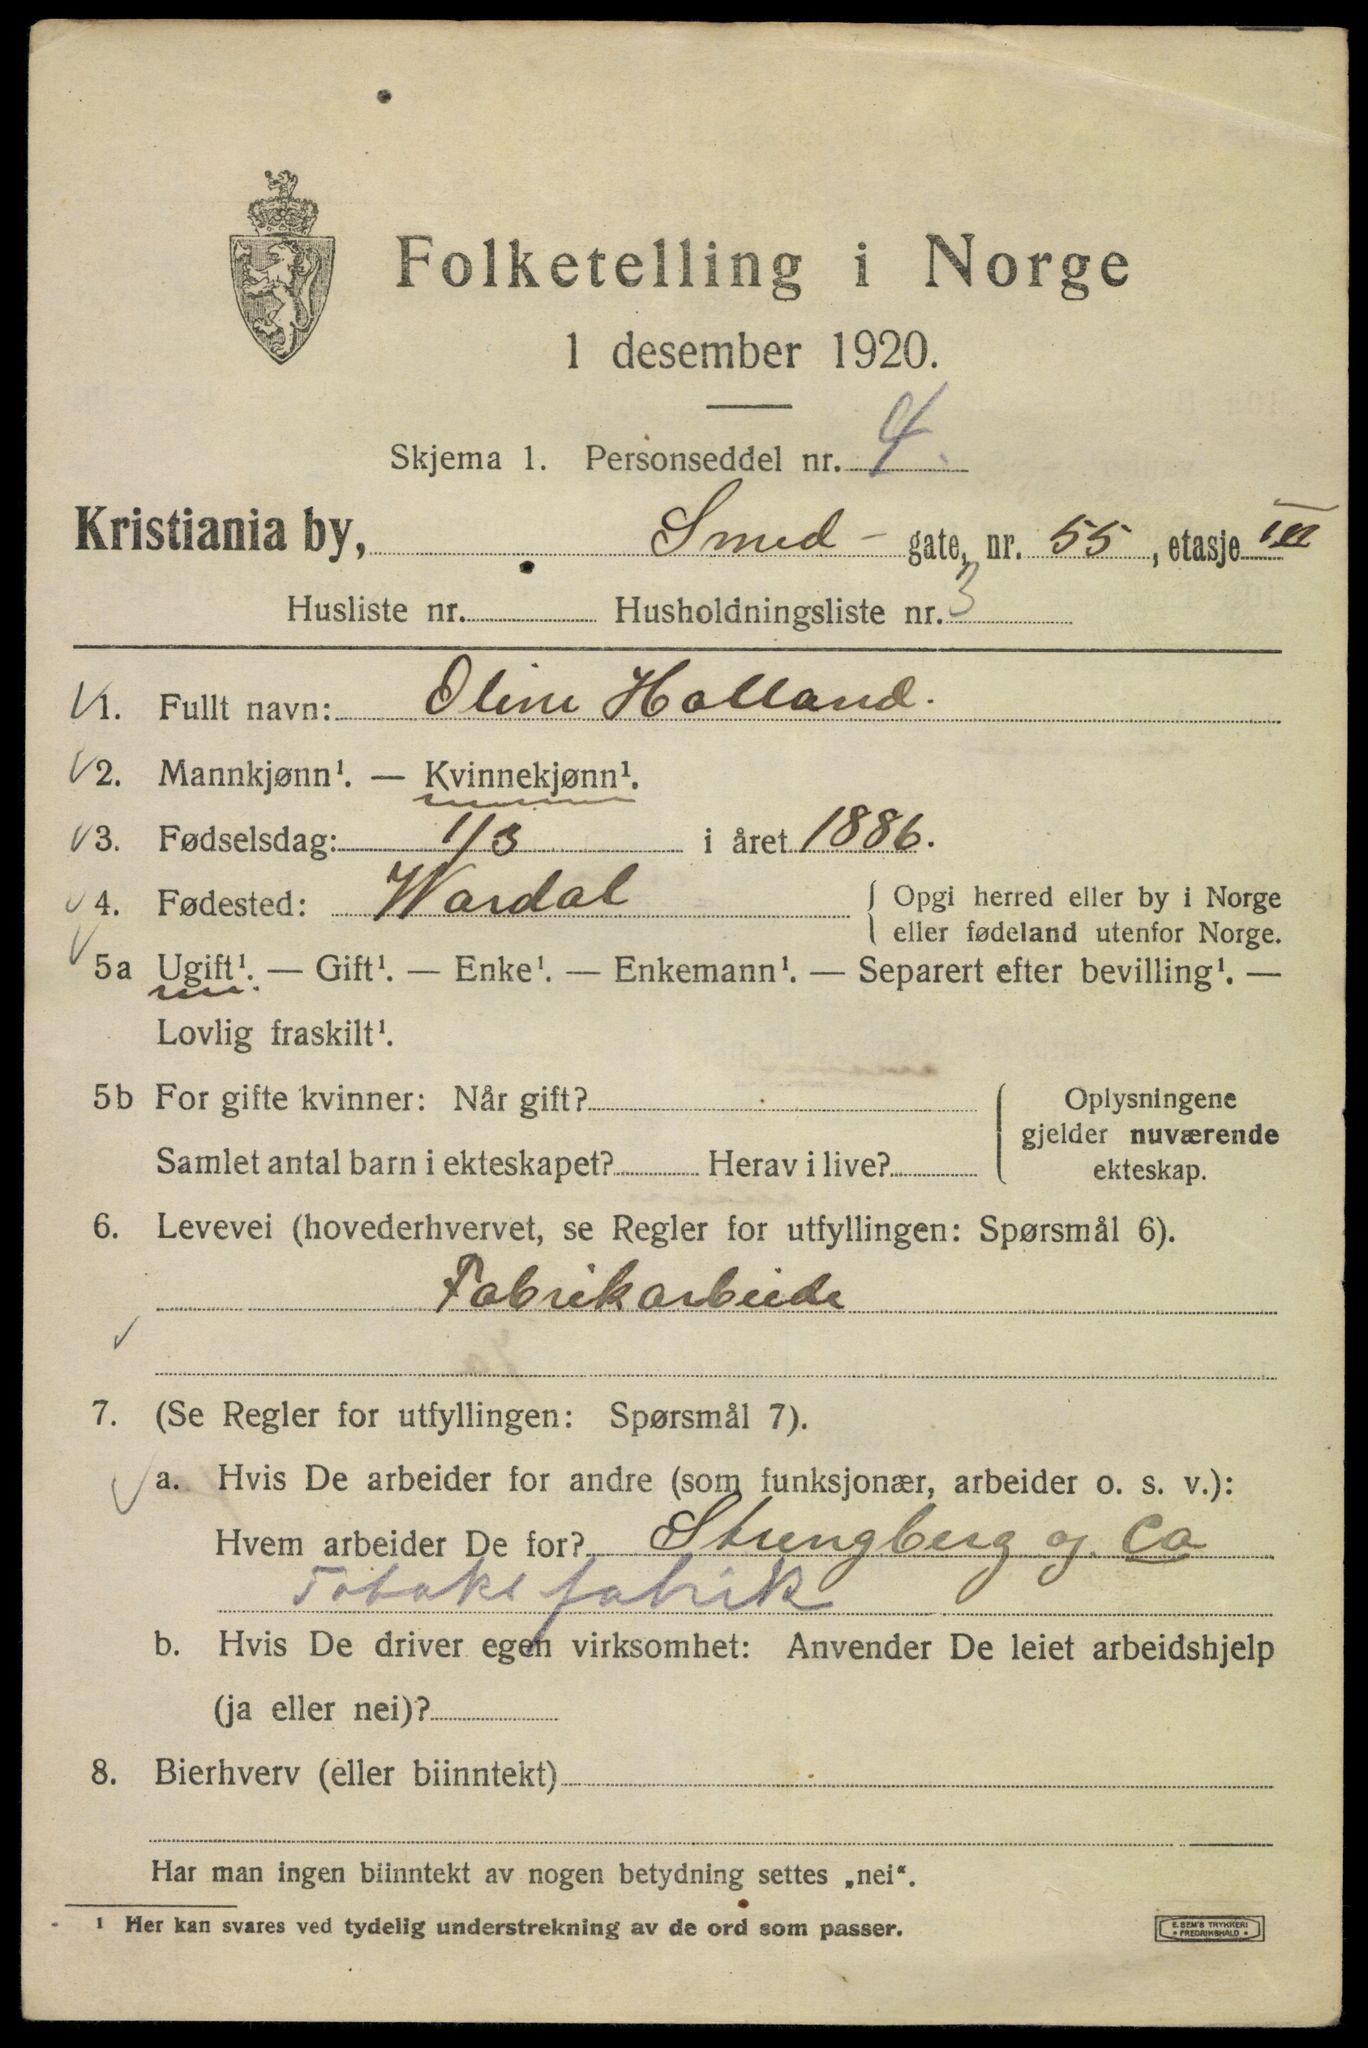 Folketelling i Norge
1 desember 1920.
Skjema 1. Personseddel nr. 4.
Kristiania by, Smed- gate, nr. 55, etasje III
Husliste nr. Husholdningsliste nr. 3
1. Fullt navn: Oline Holland.
2. Mannkjønn¹. — Kvinnekjønn¹.
3. Fødselsdag: 1/3 i året 1886.
4. Fødested: Wardal { Opgi herred eller by i Norge
eller fødeland utenfor Norge.
5a Ugift¹. — Gift¹. — Enke¹. — Enkemann¹. — Separert efter bevilling¹. —
Lovlig fraskilt¹.
5b For gifte kvinner: Når gift? { Oplysningene
gjelder nuværende
Samlet antal barn i ekteskapet? Herav i live? ekteskap.
6. Levevei (hovederhvervet, se Regler for utfyllingen: Spørsmål 6).
Fabrikarbeide
7. (Se Regler for utfyllingen: Spørsmål 7).
a. Hvis De arbeider for andre (som funksjonær, arbeider o. s. v.):
Hvem arbeider De for? Strengberg og. Co
Tobaksfabrik
b. Hvis De driver egen virksomhet: Anvender De leiet arbeidshjelp
(ja eller nei)?
8. Bierhverv (eller biinntekt)
Har man ingen biinntekt av nogen betydning settes „nei“.
¹ Her kan svares ved tydelig understrekning av de ord som passer.
E. SEM'S TRYKKERI
* FREDRIKSHALD *